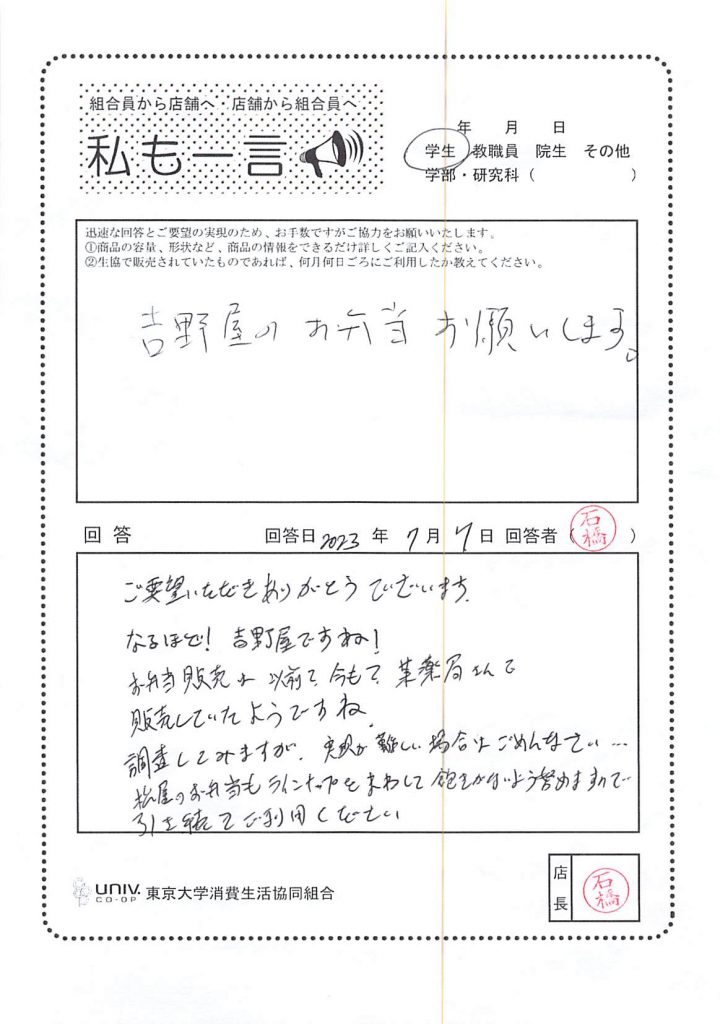 組合員から店舗へ・店舗から組合員へ
私も一言
年 月 日
学生 教職員 院生 その他
学部・研究科( )
迅速な回答とご要望の実現のため、お手数ですがご協力をお願いいたします。
①商品の容量、形状など、商品の情報をできるだけ詳しくご記入ください。
②生協で販売されていたものであれば、何月何日ごろにご利用したか教えてください。
吉野屋のお弁当お願いします。
回答 回答日 2023 年 7 月 7 日 回答者(石橋)
ご要望いただきありがとうございます。
なるほど!吉野屋ですね!
お弁当販売は以前で、今もて、某薬局さんで
販売していたようですね。
調査してみますが、実現が難しい場合はごめんなさい…
松屋のお弁当もラインナップをまわして飽きがないよう努めますので
引き続きご利用ください
UNIV. CO-OP 東京大学消費生活協同組合
店長 石橋